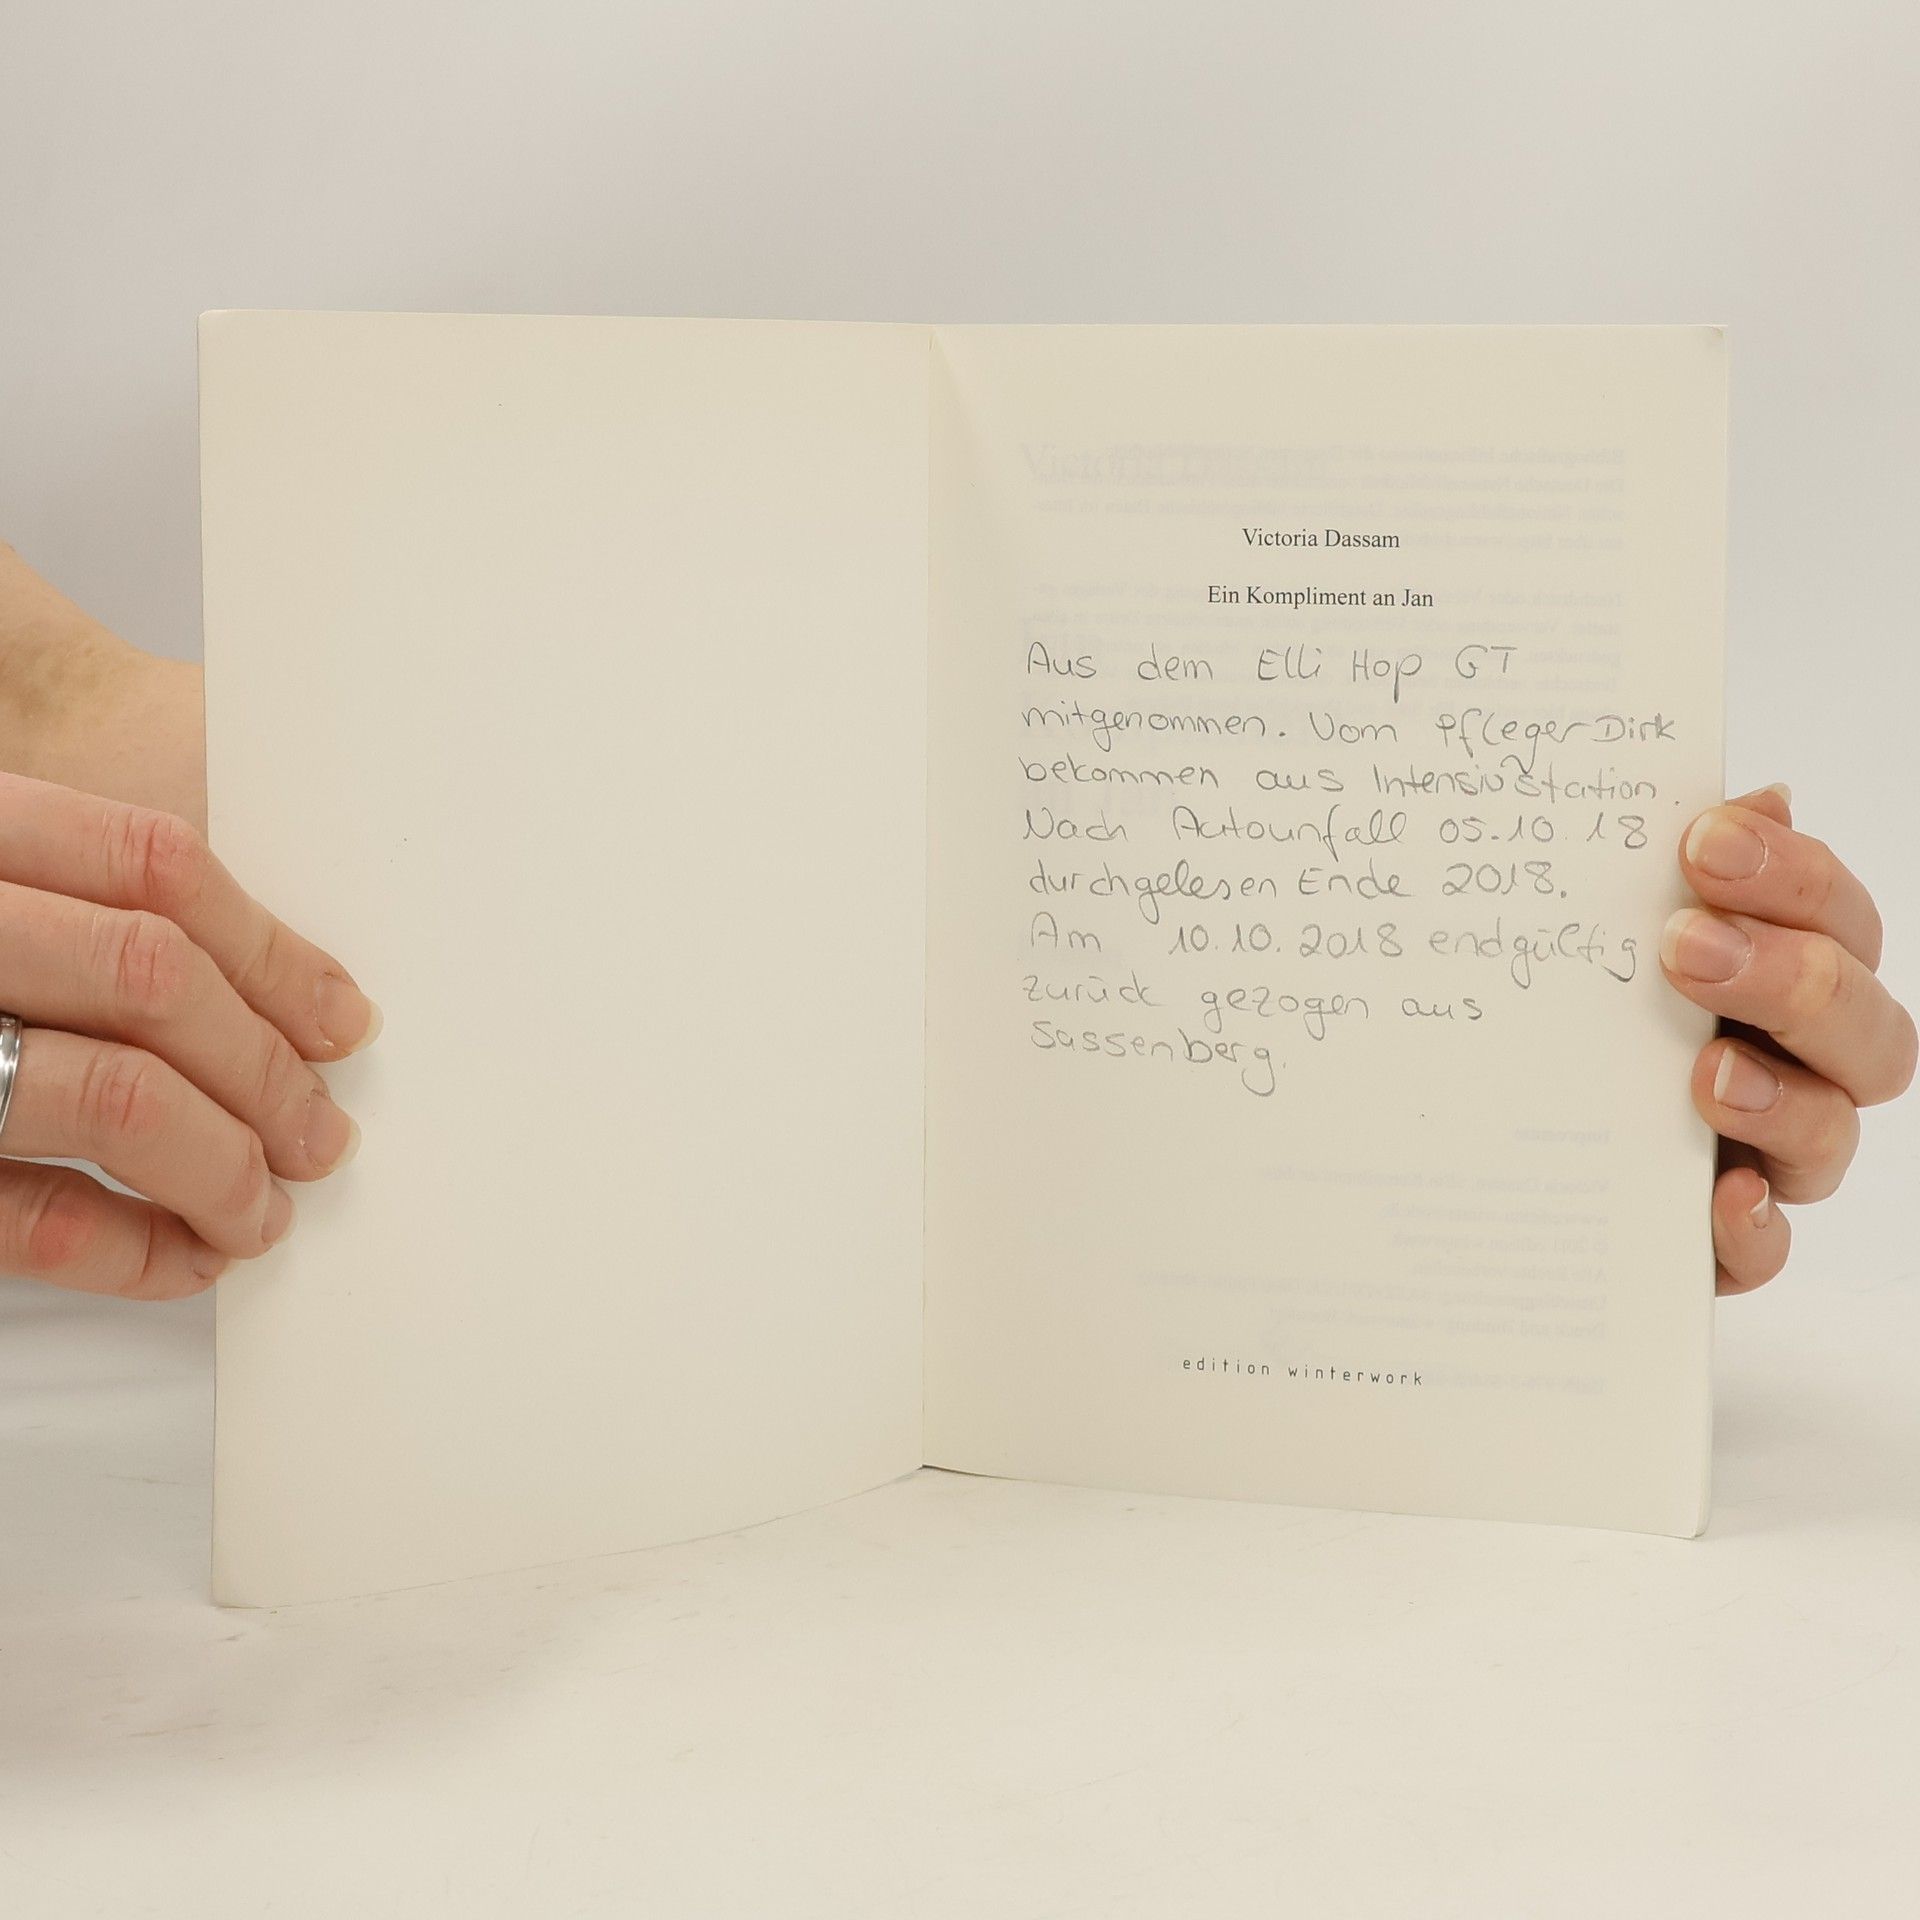 Victoria Dassam
Ein Kompliment an Jan
Aus dem Elli Hop GT
mitgenommen. Vom Pfleger Dirk
bekommen aus Intensivstation.
Nach Autounfall 05.10.18
durchgelesen Ende 2018.
Am 10.10.2018 endgültig
zurück gezogen aus
Sassenberg.
edition winterwork